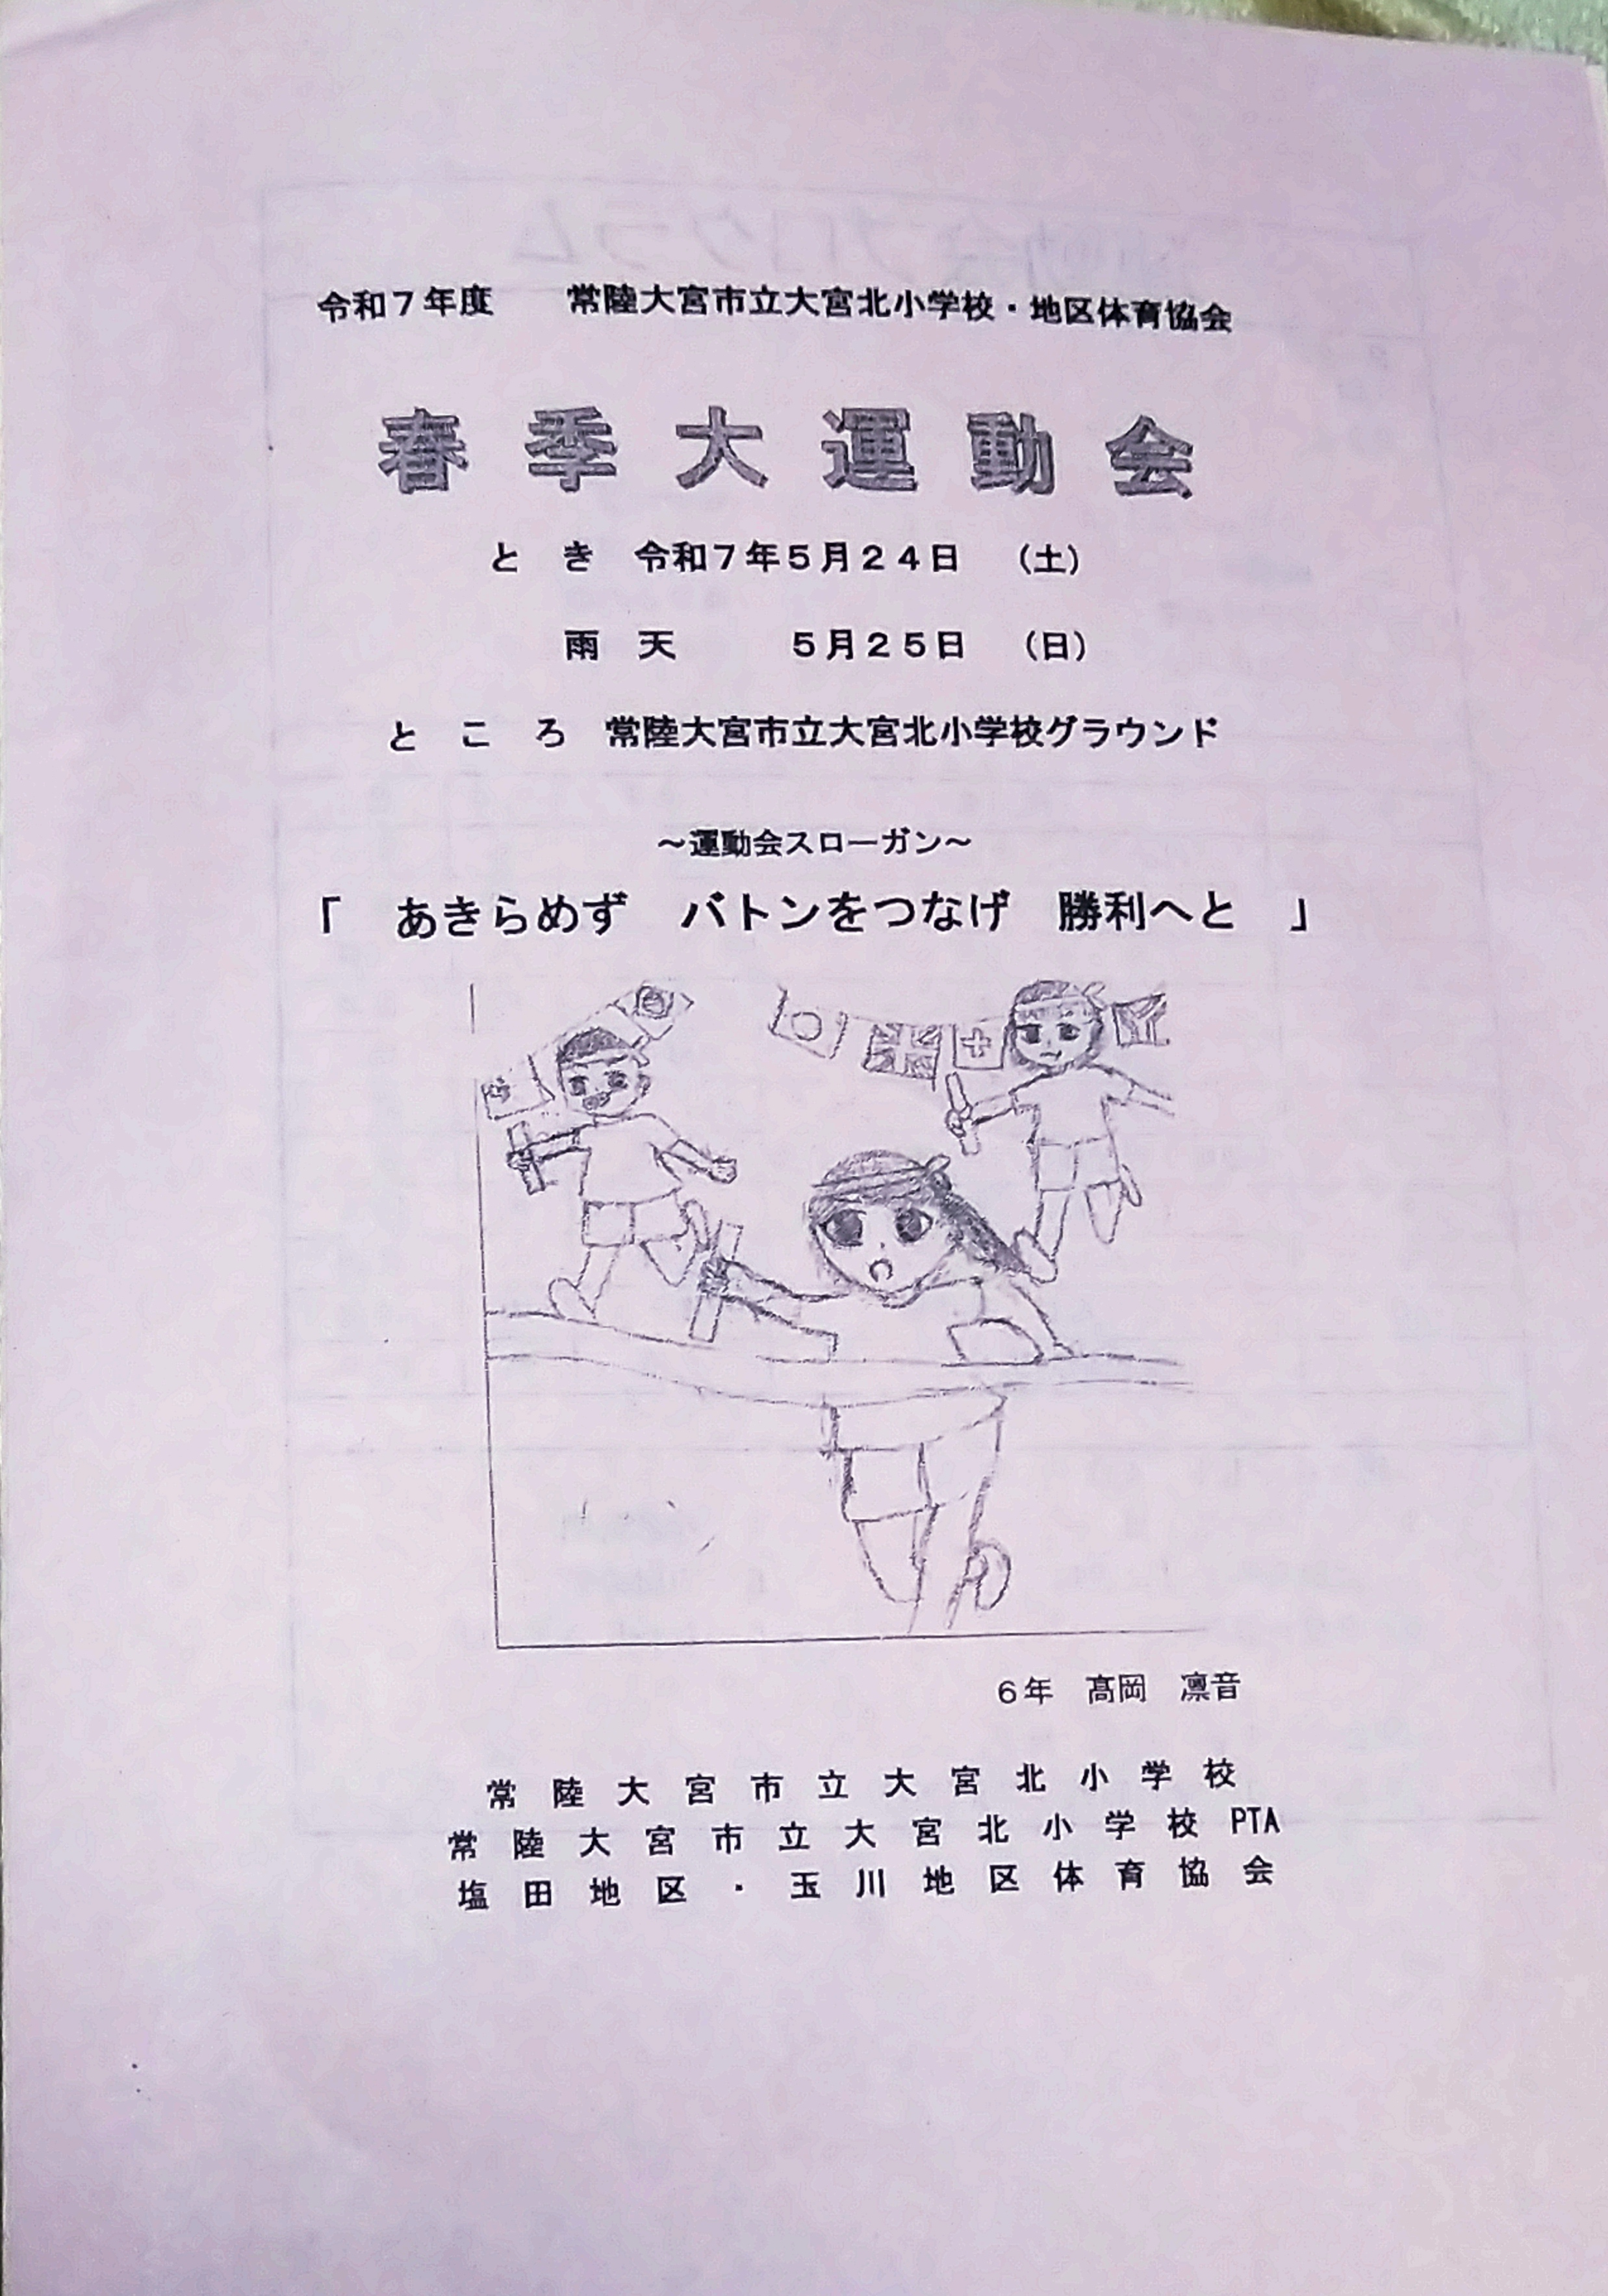 令和７年度　常陸大宮市立大宮北小学校・地区体育協会
春季大運動会
とき　令和７年５月２４日　（土）
雨天　５月２５日　（日）
ところ　常陸大宮市立大宮北小学校グラウンド
～運動会スローガン～
「　あきらめず　バトンをつなげ　勝利へと　」
６年　髙岡　凛音
常陸大宮市立大宮北小学校
常陸大宮市立大宮北小学校PTA
塩田地区・玉川地区体育協会